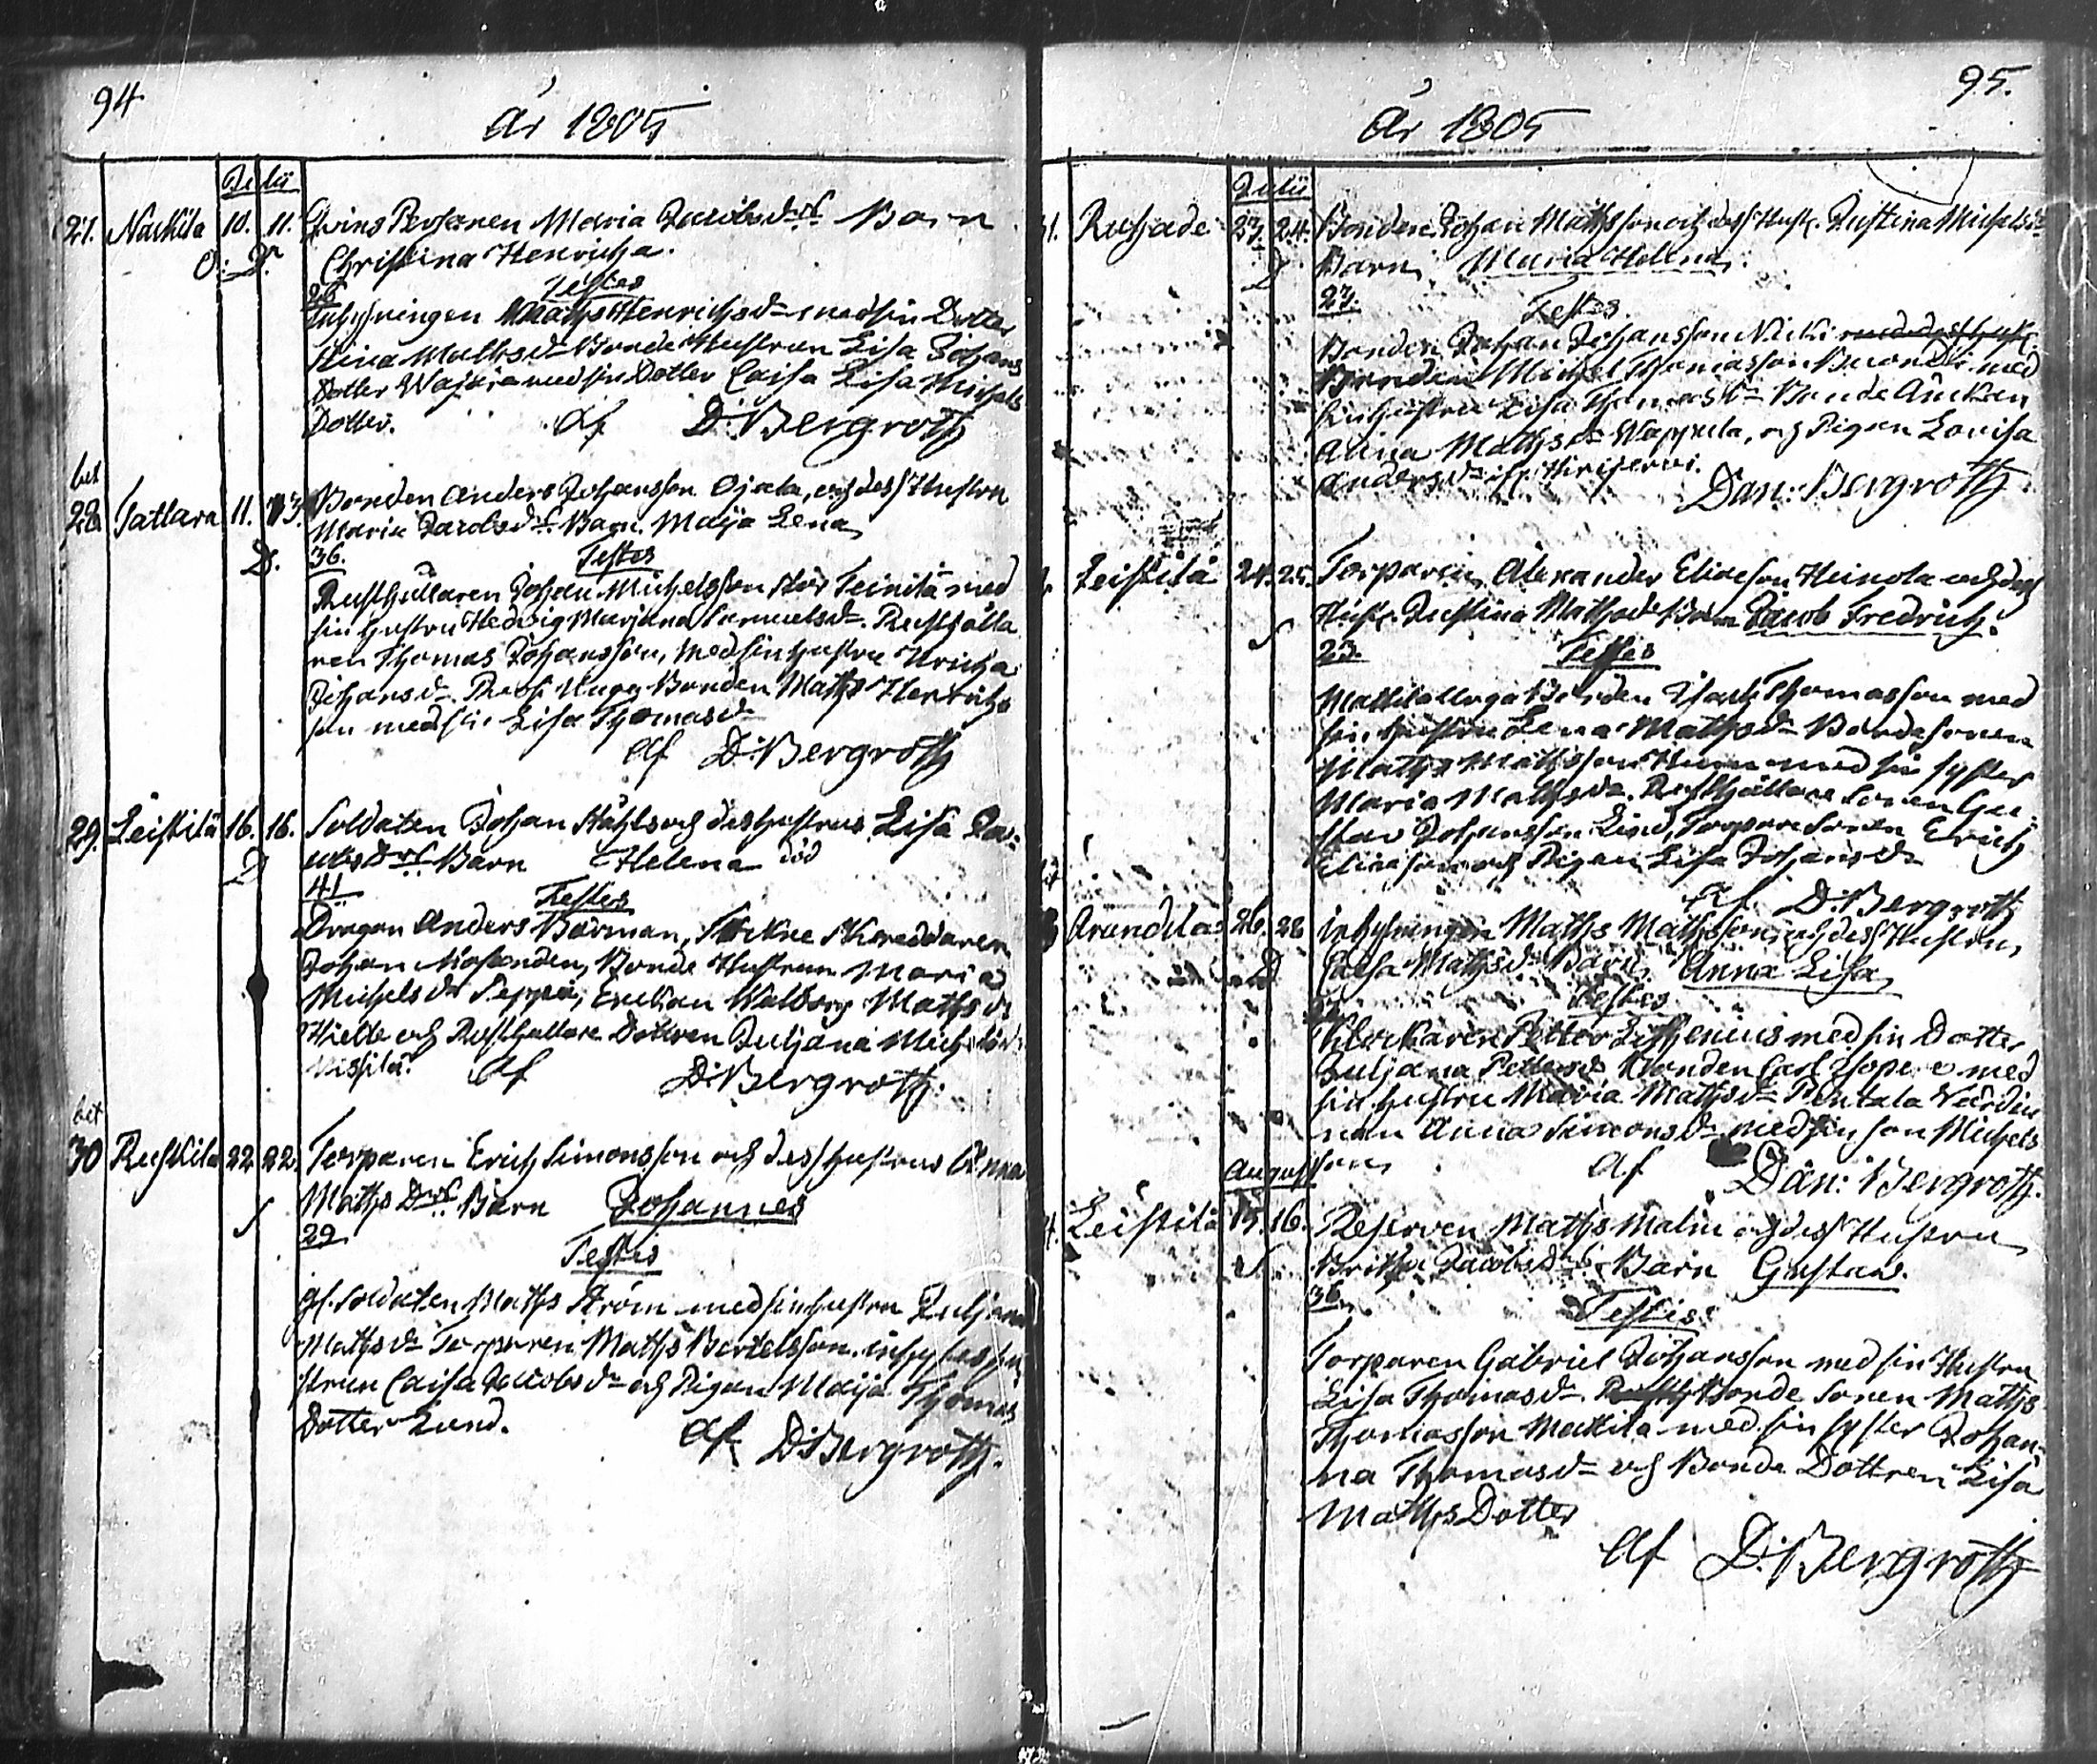 94
År 1805
Julii
27. Nackila 10. 11. Qvins Personen Maria Jacobsdrs Barn
O: D. Christina Henricha.
26 Testes
Inhysningen Maths Henrichsdr med sin Dotter
Stina Mathsdr Bonde Hustrun Lisa Johans
Dotter Wajaria med sin Dotter Caisa Lisa Michels
Dotter. Af D: Bergroth
bet
28 Tattara 11. 13. Bonden Anders Johansson Ojala, och dess Hustru
Maria Jacobsdrs Barn Maija Lena
D. 36. Testes
Rusthållaren Johan Michelsson Stor Teinilä med
sin hustru Hedvig Marjana Samuelsdr. Rusthålla
ren Thomas Johansson, med sin hustru Ulricha
Johansdr. Bonden Maths Henrichs
son med sin Lisa Thomasdr
Af D: Bergroth
29. Leistilä 16. 16. Soldaten Johan Ståhls och des hustrus Lisa Ja-
cobs Drs Barn Helena död
D 41 Testes
Dragon Anders Bärman, Sockne Skreddaren
Johan Bonde Hustrun Maria
Michels dr Seppä, Enckan Walborg Maths dr
Hielte och Rusthållare Dottren Juljana Michelsdr
Vissilä. Af D: Bergroth:
bet
30 Rustkila 22 22. Torparen Erich Simonsson och dess hustrus Anna
Maths Drs Barn Johannes
S 29 Testis
gl. Soldaten Maths Ström med sin hustru Juljana
Mathsdr Torparen Maths Bertelsson. inhyses hu
strun Caisa Jacobsdr och Pigan Maija Thomas
Dotter Lund. Af D: Bergroth.
95.
År 1805
Julii
31. Rutsade 23. 24. Bonden Johan Mathsson och dess Hust. Justina Michelsdr
D Barn Maria Helena.
23. Testes.
Bonden Johan Johansson Nicki med dess hust.
Bonden Michel Thomasson med
sin hustru Lisa Thomasdr Bonde Änckan
Anna Mathsdr Wappula, och Pigan Lovisa
Andersdr Hirijerwi.
Dan: Bergroth
Leistilä 24. 25. Torparen Alexander Eliæson Heinola och dess
S Hust. Justina Mathsdr Barn Jacob Fredrich.
23. Testes
Bonden Isach Thomasson med
sin hustru Lena Mathsdr Bondesonen
Maths Mathsson med sin syster
Maria Mathsdr. Rusthållare Sonen Gu-
stav Johansson Lind, Torpare sonen Erich
Eliæson och Pigan Lisa Johansdr
Af D: Bergroth
Arandila 26. 28 inhysningen Maths Mathsson, och dess Hustru
D Caisa Mathsdr Barn Anna Lisa
Testes
Klockaren Petter med sin Dotter
Juljana Pettersdr Bonden Carl med
sin hustru Maria Mathsdr Pentala Värdin
nan Anna Simonsdr med sin son Michels
son, Af Dan: Bergroth.
August
Leistilä 15. 16. Reserven Maths Malm och dess Hustru
S Britha Jacobsdrs Barn Gustav.
36. Testis:
Torparen Gabriel Johansson med sin Hustru
Lisa Thomasdr. Bonde Sonen Maths
Thomasson Mattila med sin syster Johan-
na Thomasdr och Bonde Dottren Lisa
Maths Dotter
Af D: Bergroth